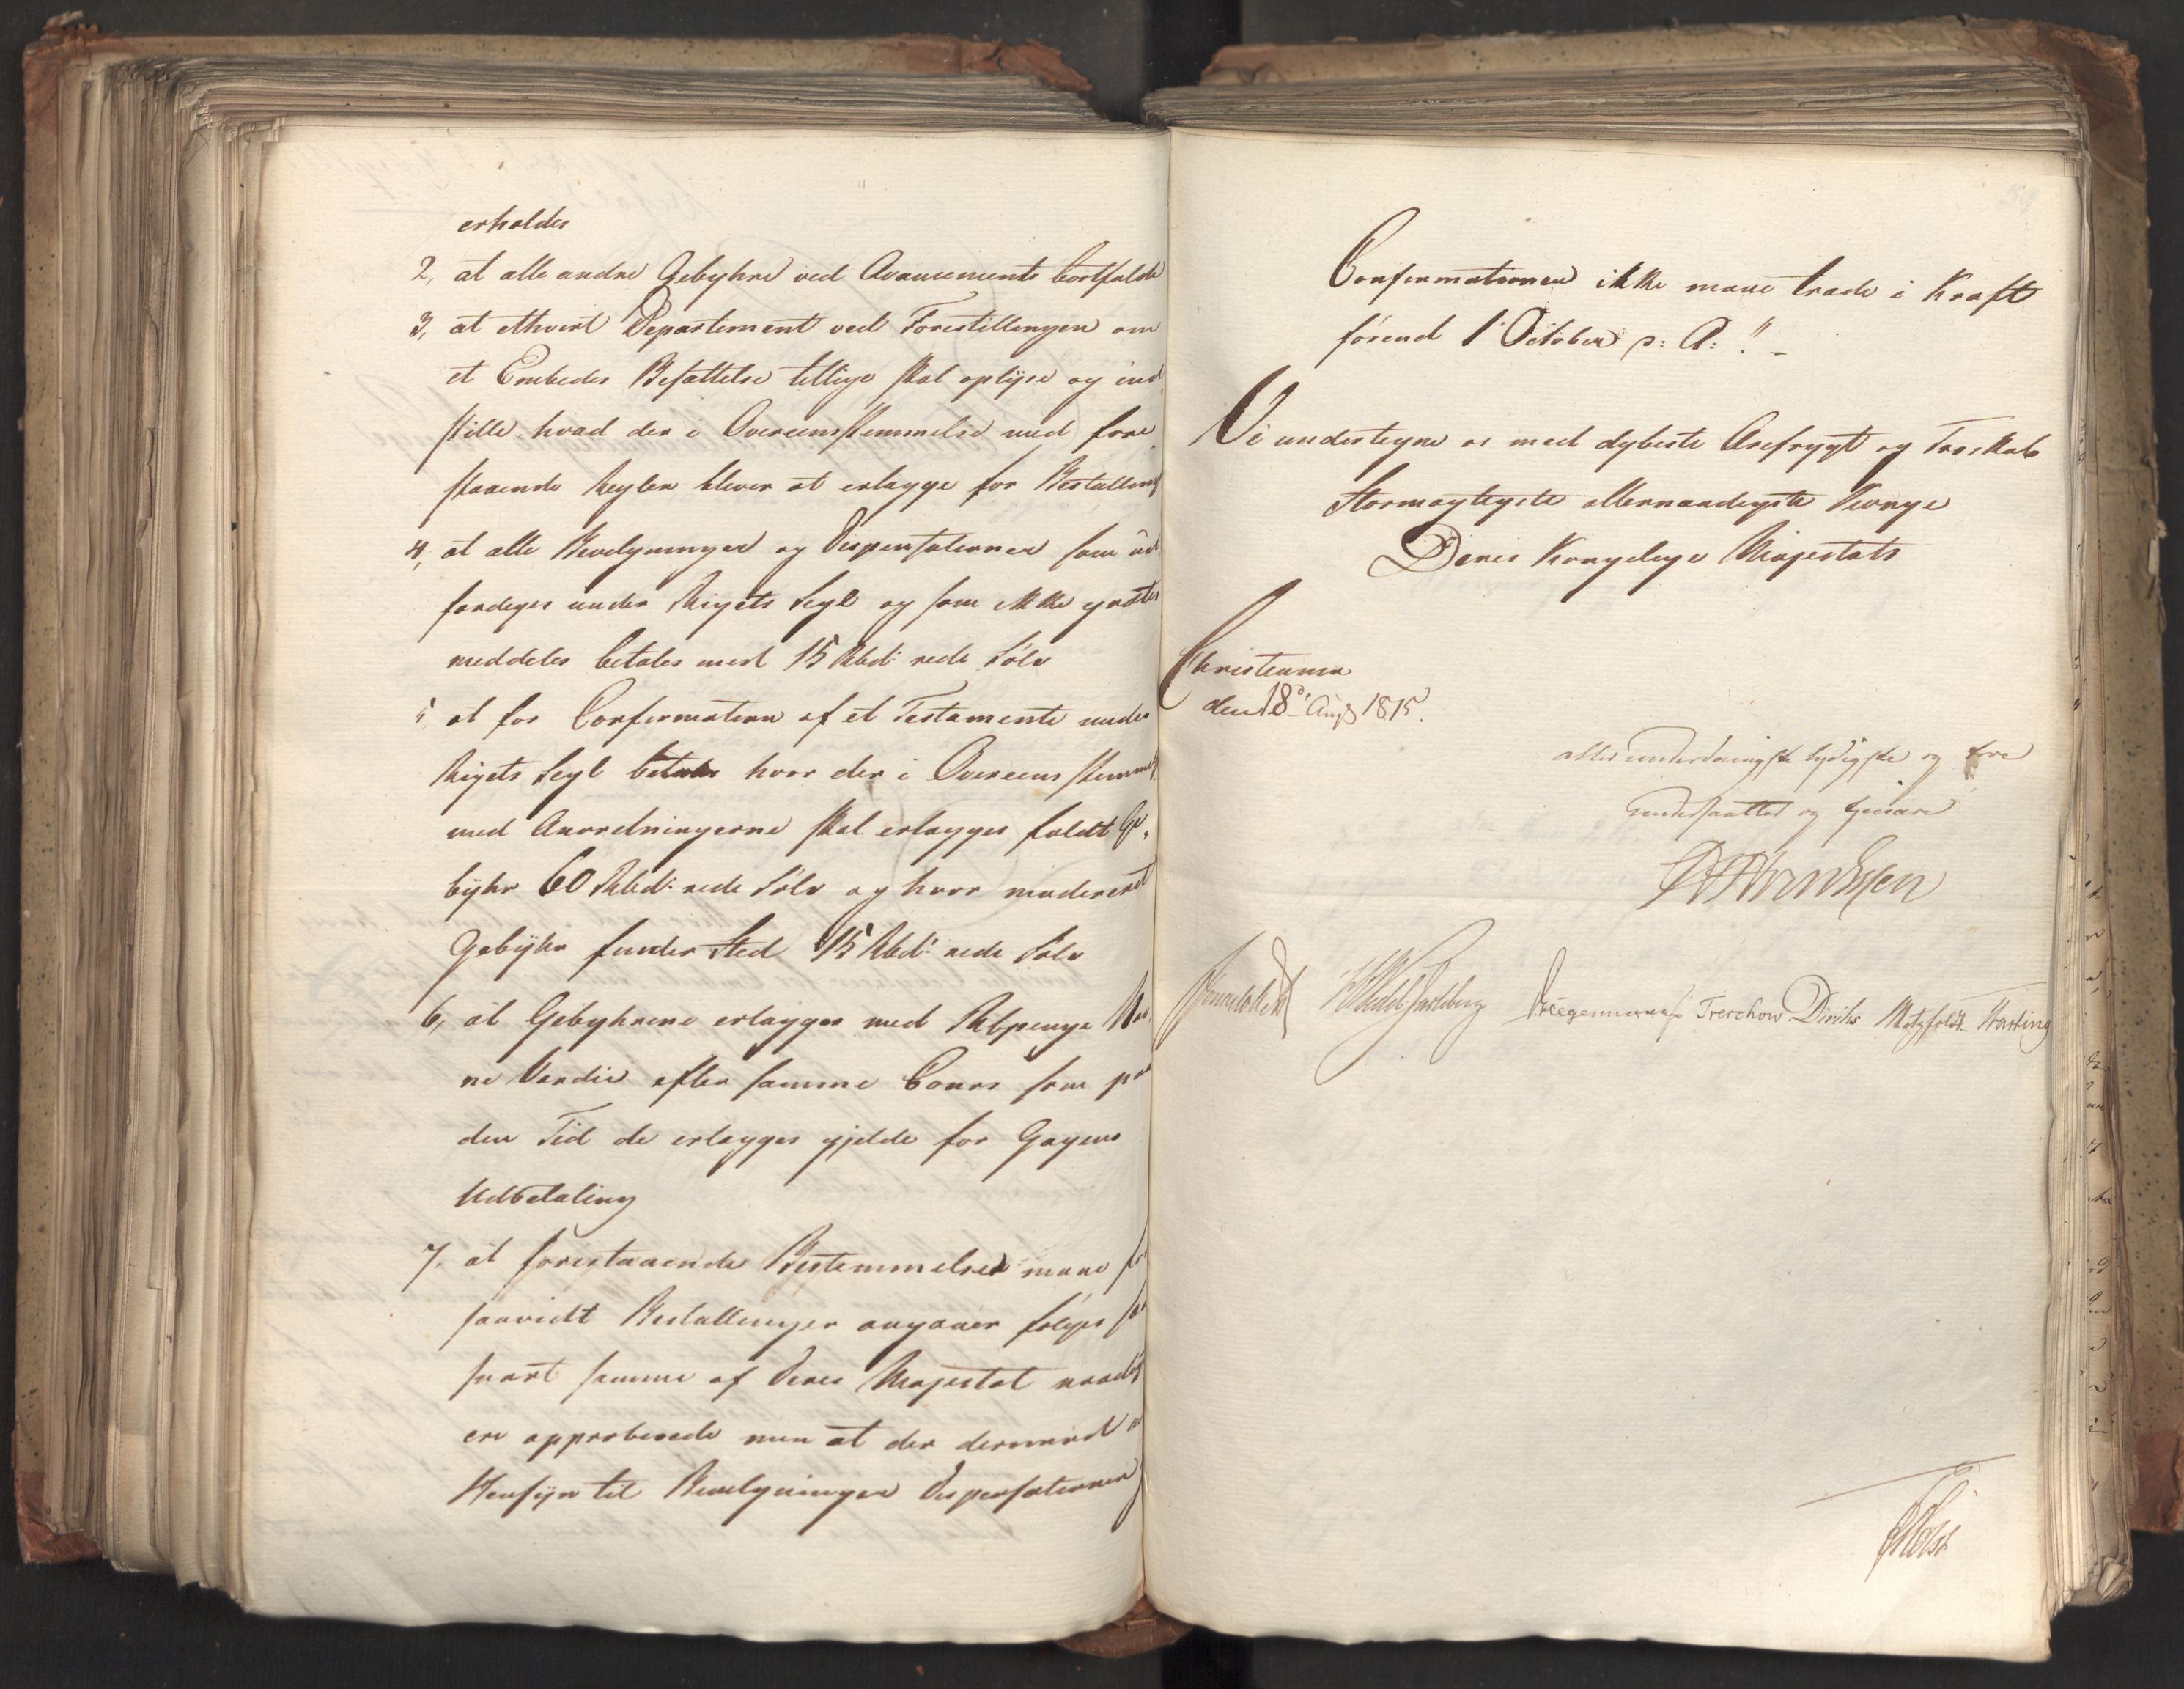 erholdes
2, at alle andre Gebyhrer ved Avancements bortfalde
3, at ethvert Departement ved Forestillingen om
et Embedes Besættelse tillige skal oplyse og ind
stille hvad der i Overeensstemmelse med fore
staaende Regler bliver at erlægge for Bestalling
4, at alle Bevilgninger og Dispensationer som ud
færdiges under Rigets Segl og som ikke gratis
meddeles betales med 15 Rbd: rede Sølv
5, at for Confirmation af et Testamente under
Rigets Segl betales hvor der i Overeensstemmels
med Anordningerne skal erlægges fuldt Ge,
byhr 60 Rbd: rede Sølv og hvor modereret
Gebyhr finder Sted 15 Rbd: rede Sølv
6, at Gebyhrene erlægges med Rbpenge
ne Værdie efter samme Cours som paa
den Tid de erlægges gjelde for Gagens
Udbetaling
7, at forestaaende Bestemmelser maae for
saavidt Bestallinger angaaer følges saa
snart samme af Deres Majestæt naadigst
ere approberede men at der derimod
Hensyn til Bevilgninger Dispensationer
Confirmationer ikke maae træde i Kraft
førend 1 October d: A: !! -
Vi undertegne os med dybeste Ærefrygt og Troskab
Stormægtigste allernaadigste Konge
Deres Kongelige Majestæts
Christiania
den 18de Aug 1815.
allerunderdanigste lydigste og troe
undersaatter og tjenere
Sommerhielm HWedel Jarlsberg Kriegenmann Treschow Diriks Motzfeldt Hasting
Holst